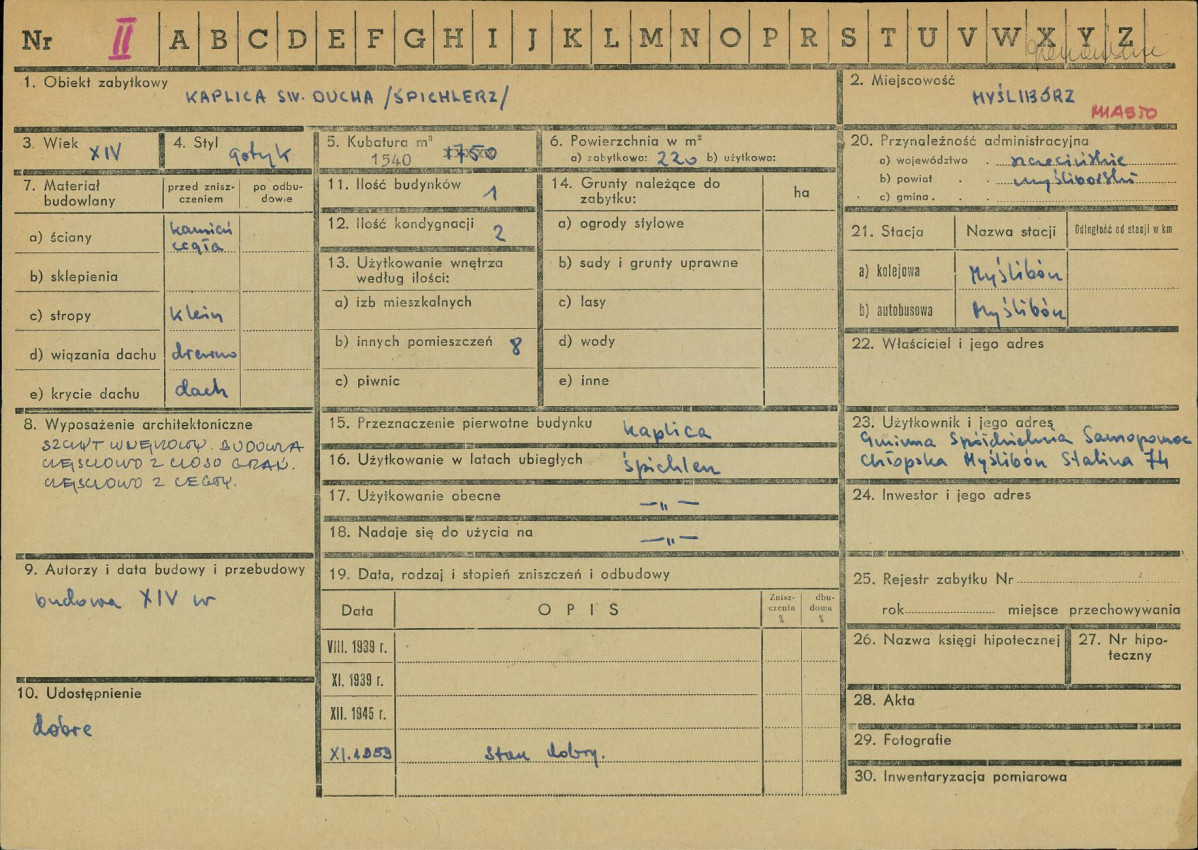 Nr II A B C D E F G H I J K L M N O P R S T U V W X Y Z
1. Obiekt zabytkowy
KAPLICA ŚW. DUCHA /ŚPICHLERZ/
2. Miejscowość
MYŚLIBÓRZ
MIASTO
3. Wiek XIV
4. Styl gotyk
5. Kubatura m³
1540 1750
6. Powierzchnia w m²
a) zabytkowa: 220 b) użytkowa:
7. Materiał budowlany
przed znisz-
czeniem
po odbu-
dowie
a) ściany kamień
cegła
b) sklepienia
c) stropy klein
d) wiązania dachu drewno
e) krycie dachu dach
8. Wyposażenie architektoniczne
SZCZYT WNĘKOWY. BUDOWA
CZĘŚCIOWO Z CIOSÓ GRAN.
CZĘŚCIOWO Z CEGŁY.
9. Autorzy i data budowy i przebudowy
budowa XIV w
10. Udostępnienie
dobre
11. Ilość budynków 1
12. Ilość kondygnacji 2
13. Użytkowanie wnętrza
według ilości:
a) izb mieszkalnych
b) innych pomieszczeń 8
c) piwnic
14. Grunty należące do
zabytku:
ha
a) ogrody stylowe
b) sady i grunty uprawne
c) lasy
d) wody
e) inne
15. Przeznaczenie pierwotne budynku kaplica
16. Użytkowanie w latach ubiegłych śpichlerz
17. Użytkowanie obecne —„—
18. Nadaje się do użycia na —„—
19. Data, rodzaj i stopień zniszczeń i odbudowy
Data
OPIS
Znisz-
czenia
%
dbu-
dowa
%
VIII. 1939 r.
XI. 1939 r.
XII. 1945 r.
XI.1959 Stan dobry.
20. Przynależność administracyjna
a) województwo szczecińskie
b) powiat myśliborski
c) gmina
21. Stacja
Nazwa stacji
Odległość od stacji w km
a) kolejowa Myślibórz
b) autobusowa Myślibórz
22. Właściciel i jego adres
23. Użytkownik i jego adres
Gminna Spółdzielnia Samopomoc
Chłopska Myślibórz Stalina 74
24. Inwestor i jego adres
25. Rejestr zabytku Nr
rok miejsce przechowywania
26. Nazwa księgi hipotecznej
27. Nr hipo-
teczny
28. Akta
29. Fotografie
30. Inwentaryzacja pomiarowa